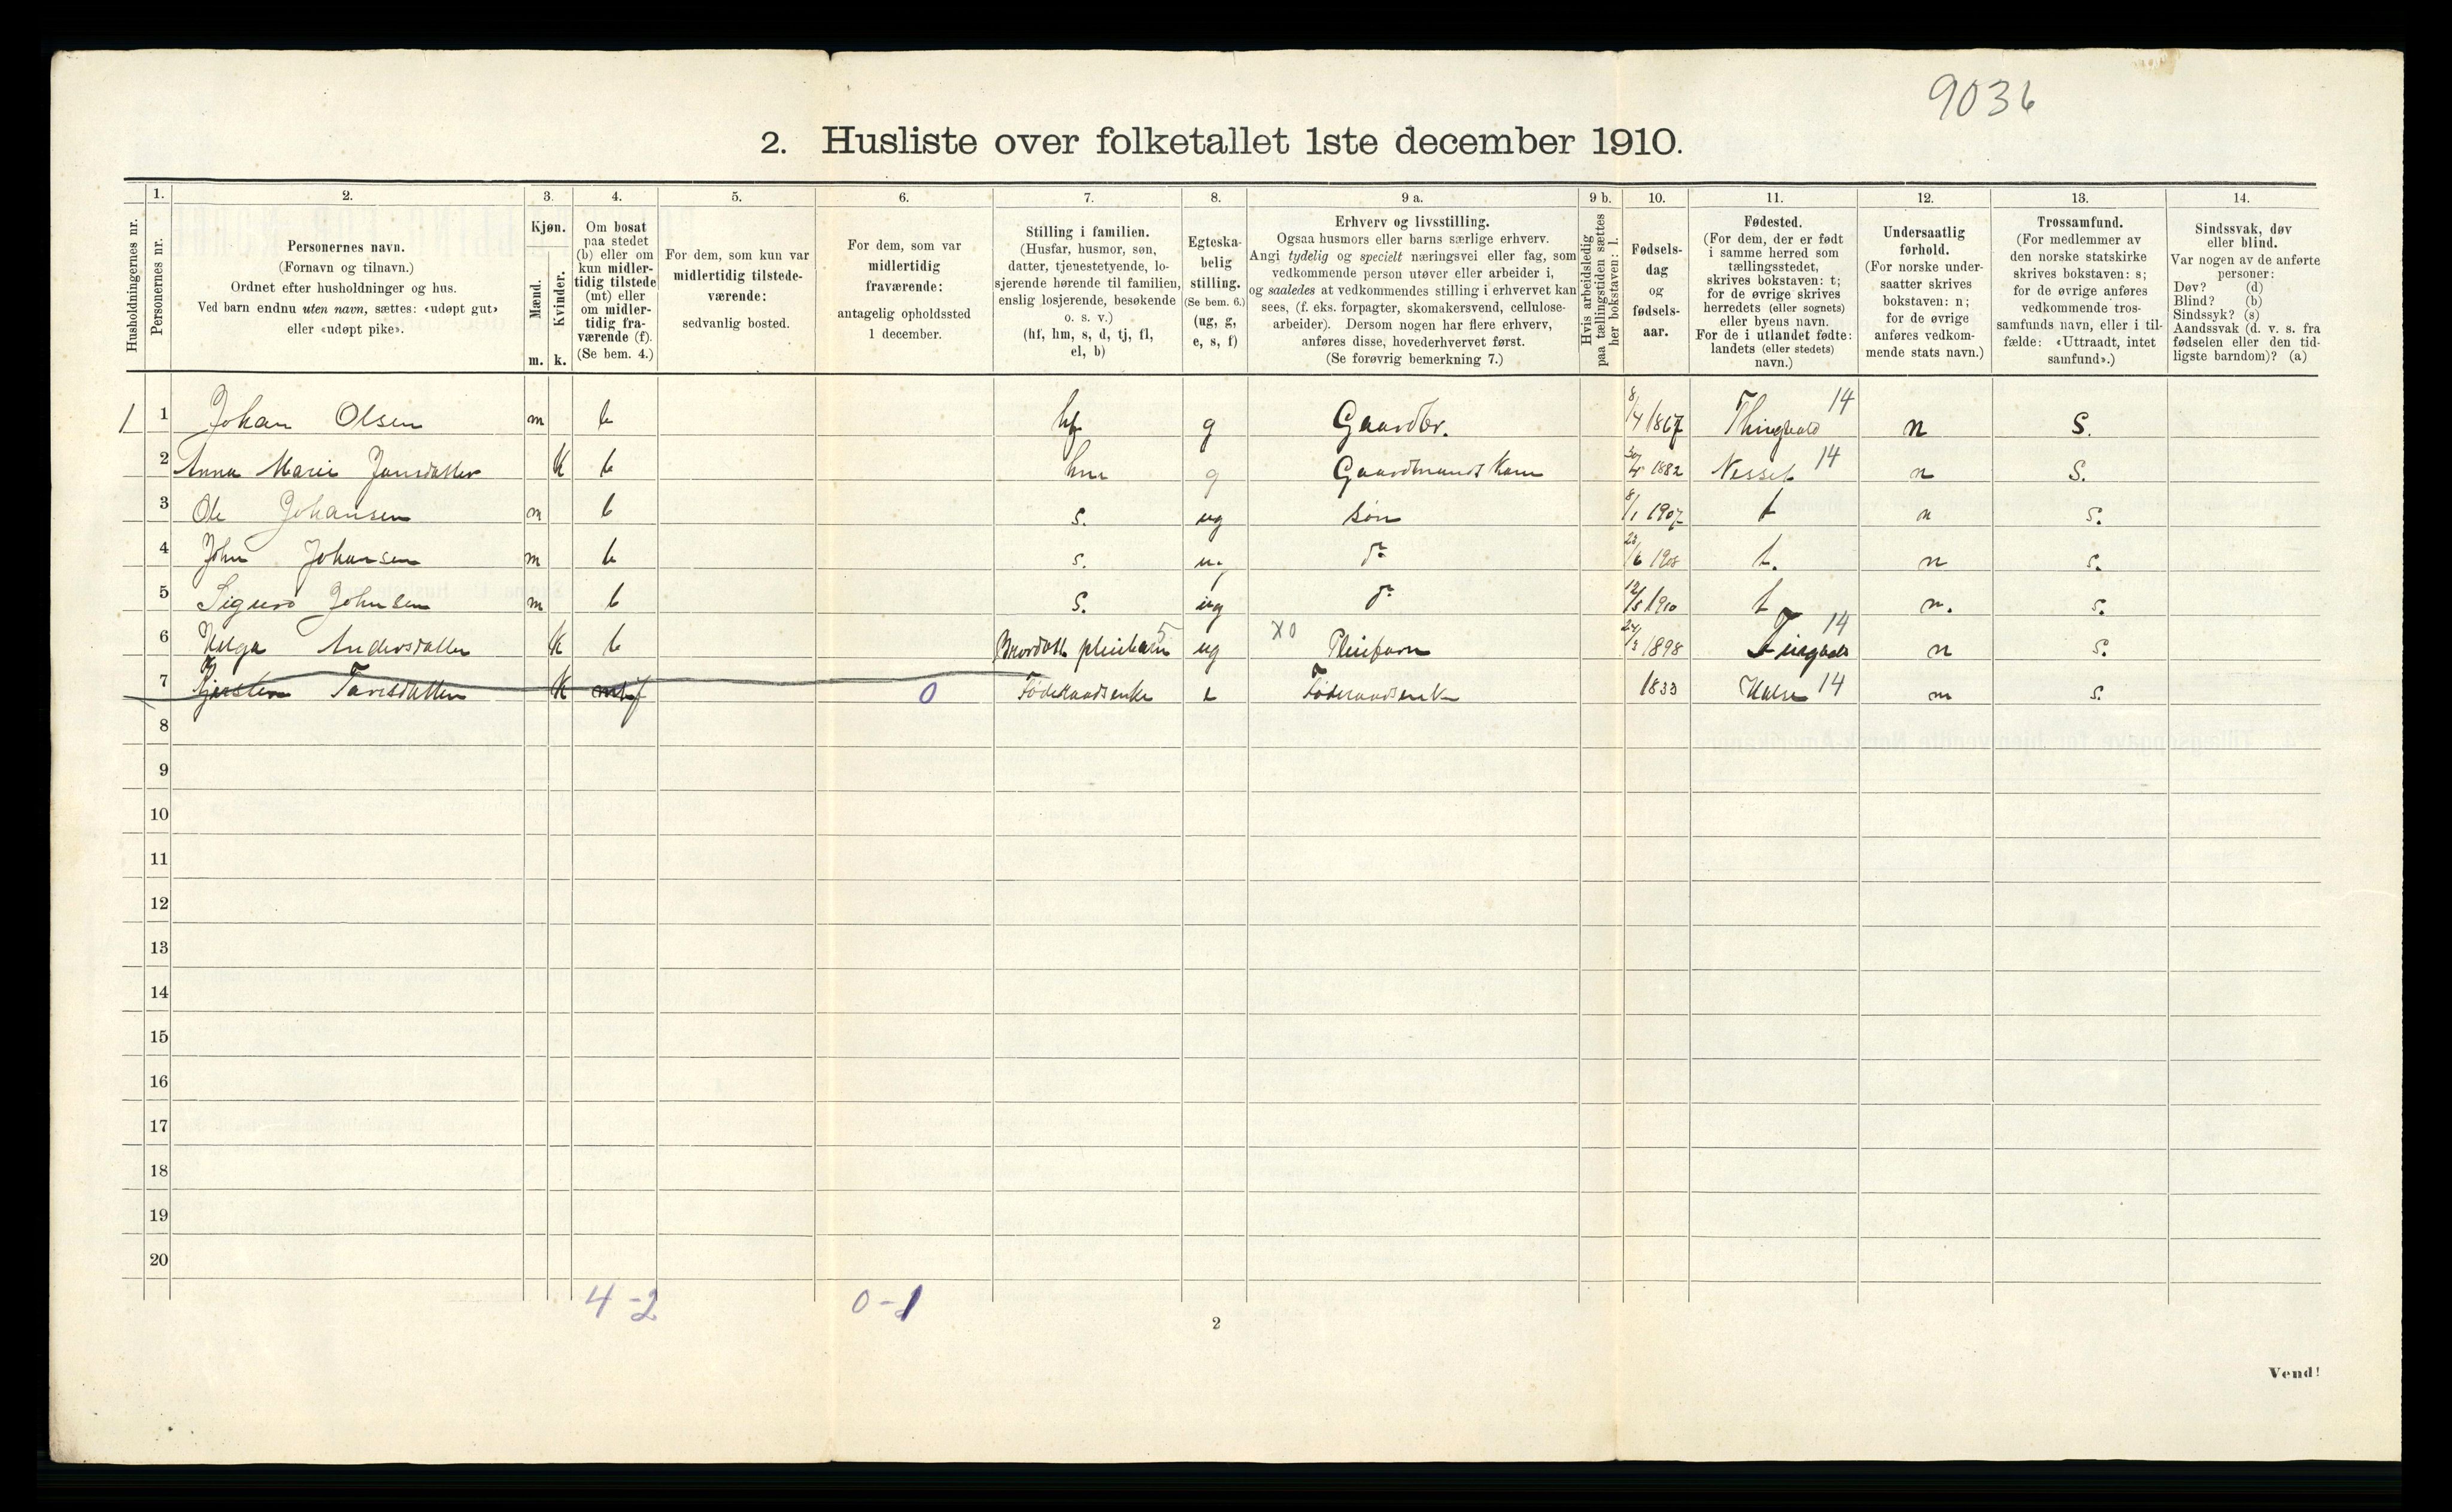 9036
2. Husliste over folketallet 1ste december 1910.
Husholdningernes nr.
1.
Personernes nr.
2.
Personernes navn.
(Fornavn og tilnavn.)
Ordnet efter husholdninger og hus.
Ved barn endnu uten navn, sættes: «udøpt gut»
eller «udøpt pike».
3.
Kjøn.
Mænd.
m.
Kvinder.
k.
4.
Om bosat
paa stedet
(b) eller om
kun midler-
tidig tilstede
(mt) eller
om midler-
tidig fra-
værende (f).
(Se bem. 4.)
5.
For dem, som kun var
midlertidig tilstede-
værende:
sedvanlig bosted.
6.
For dem, som var
midlertidig
fraværende:
antagelig opholdssted
1 december.
7.
Stilling i familien.
(Husfar, husmor, søn,
datter, tjenestetyende, lo-
sjerende hørende til familien,
enslig losjerende, besøkende
o. s. v.)
(hf, hm, s, d, tj, fl,
el, b)
8.
Egteska-
belig
stilling.
(Se bem. 6.)
(ug, g,
e, s, f)
9 a.
Erhverv og livsstilling.
Ogsaa husmors eller barns særlige erhverv.
Angi tydelig og specielt næringsvei eller fag, som
vedkommende person utøver eller arbeider i,
og saaledes at vedkommendes stilling i erhvervet kan
sees, (f. eks. forpagter, skomakersvend, cellulose-
arbeider). Dersom nogen har flere erhverv,
anføres disse, hovederhvervet først.
(Se forøvrig bemerkning 7.)
9 b.
Hvis arbeidsledig
paa tællingstiden sættes
her bokstaven: l.
10.
Fødsels-
dag
og
fødsels-
aar.
11.
Fødested.
(For dem, der er født
i samme herred som
tællingsstedet,
skrives bokstaven: t;
for de øvrige skrives
herredets (eller sognets)
eller byens navn.
For de i utlandet fødte:
landets (eller stedets)
navn.)
12.
Undersaatlig
forhold.
(For norske under-
saatter skrives
bokstaven: n;
for de øvrige
anføres vedkom-
mende stats navn.)
13.
Trossamfund.
(For medlemmer av
den norske statskirke
skrives bokstaven: s;
for de øvrige anføres
vedkommende tros-
samfunds navn, eller i til-
fælde: «Uttraadt, intet
samfund».)
14.
Sindssvak, døv
eller blind.
Var nogen av de anførte
personer:
Døv? (d)
Blind? (b)
Sindssyk? (s)
Aandssvak (d. v. s. fra
fødselen eller den tid-
ligste barndom)? (a)
1 1 Johan Olsen m b hf g Gaardbr. 8/4 1867 Thingvold 14 n S.
2 Anna Marie Jonsdatter K b hm g Gaardmands Kone 1882 Nesset 14 n S.
3 Ole Johansen m b S. ug søn 8/1 1907 t n S.
4 John Johansen m b S. ug do 6 1908 t. n S.
5 Sigurd Johnsen m b S. ug do 12/5 1910 t n. S.
6 Helga Andersdatter K b Brordatt pleiebarn 5 ug X0 Pleiebarn 1898 Tingvold 14 n S.
7 Kjersten Taresdatter K f 0 Føderaadsenke e Føderaadsenke 1833 Halse 14 n S.
8
9
10
11
12
13
14
15
16
17
18
19
20
4-2 0-1
2
Vend!